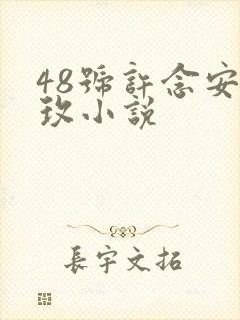 48號許念安
玖小說
長宇文拓